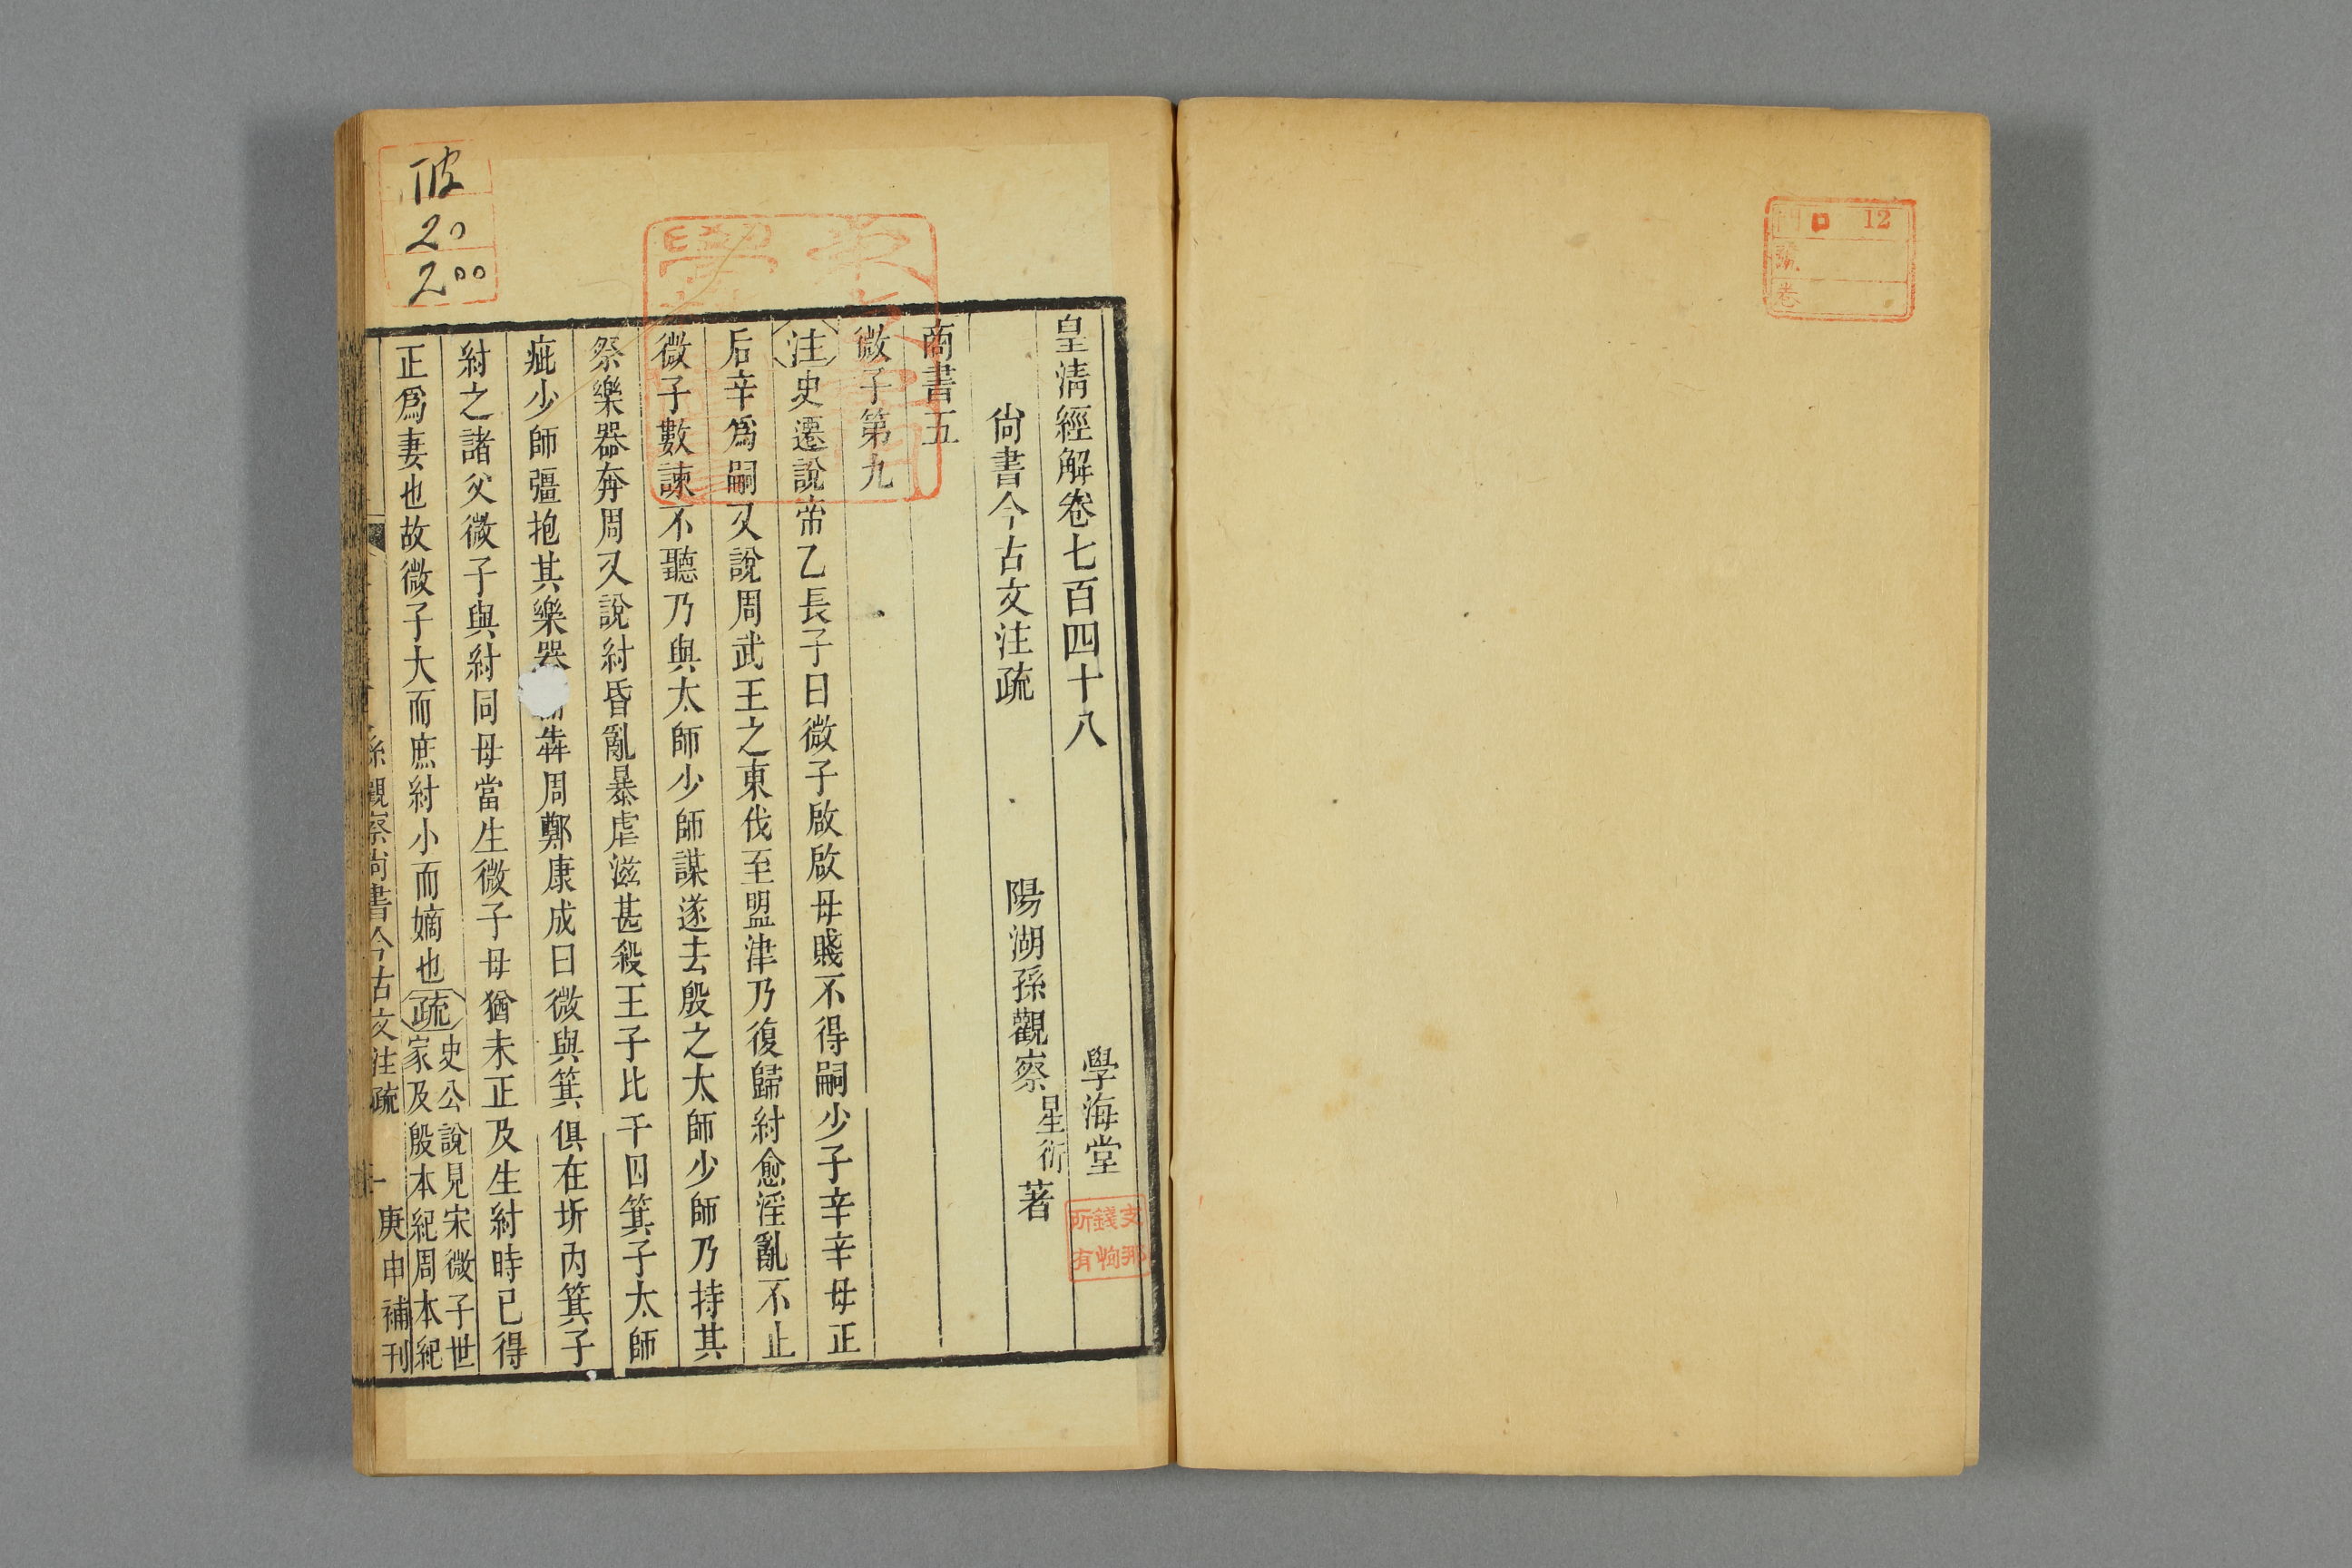 12
皇清經解卷七百四十八
學海堂
尙書今古文注疏
陽湖孫觀察星衍著
商書五
微子第九
注史遷說帝乙長子曰微子啟啟母賤不得嗣少子辛辛母正
后辛爲嗣又說周武王之東伐至盟津乃復歸紂愈淫亂不止
微子數諫不聽乃與太師少師謀遂去殷之太師少師乃持其
祭樂器奔周又說紂昏亂暴虐滋甚殺王子比干囚箕子太師
疵少師彊抱其樂器犇周鄭康成曰微與箕俱在圻內箕子
紂之諸父微子與紂同母當生微子母猶未正及生紂時已得
正爲妻也故微子大而庶紂小而嫡也疏史公說見宋微子世
家及殷本紀周本紀
孫觀察尙書今古文注疏
一
庚申補刊
支那
錢恂
所有
20
200